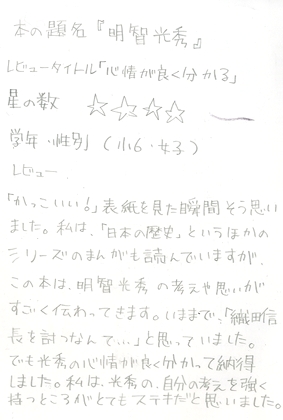 本の題名『明智光秀』
レビュータイトル「心情が良く分かる」
星の数 ☆☆☆☆
学年・性別（小6・女子）
レビュー
「かっこいい!」表紙を見た瞬間そう思い
ました。私は、「日本の歴史」というほかの
シリーズのまんがも読んでいますが、
この本は、明智光秀の考えや思いが
すごく伝わってきます。いままで、「織田信
長を討つなんて…」と思っていました。
でも光秀の心情が良く分かって納得
しました。私は、光秀の、自分の考えを強く
持つところがとてもステキだと思いました。